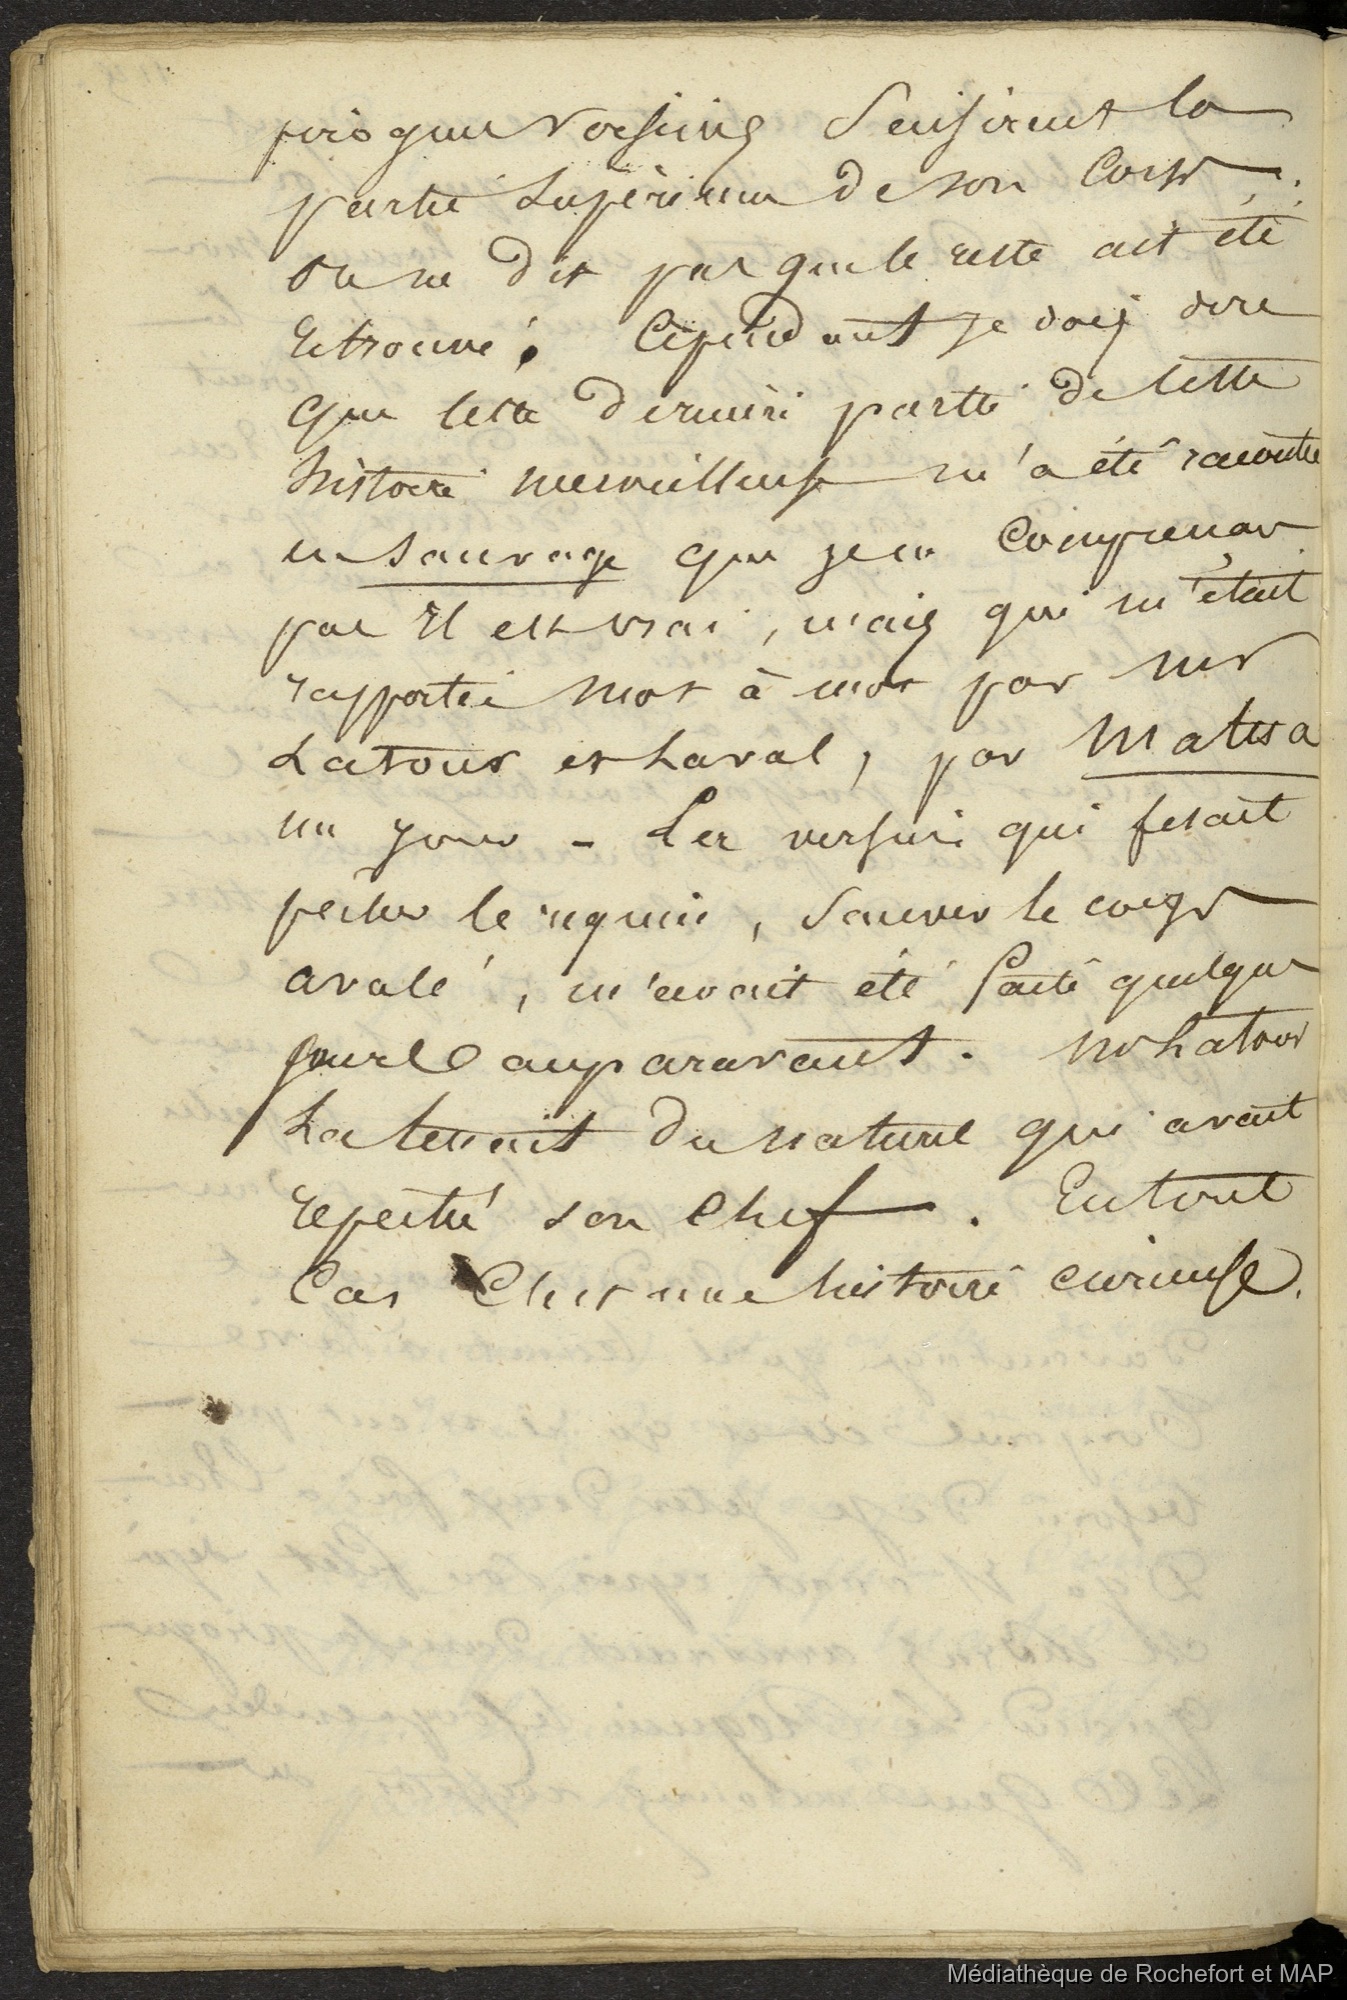 pirogues voisines saisirent la
partie supérieure de son corps.
on ne dit pas que le reste ait été
retrouvé. Cependant je dois dire
que cette dernière partie de cette
histoire merveilleuse m'a été racontée
en sauvage que je ne comprenais
pas il est vrai, mais qui m'était
rapportée mot à mot par mr
Latour et Laval, par Matua
un jour - La version qui fesait
pêcher le requin, sauver le corps
avalé, m'avait été faite quelques
jours auparavant. mr Latour
La tenait du naturel qui avait
répété son chef. En tout
Cas C'est une histoire curieuse.
Médiathèque de Rochefort et MAP